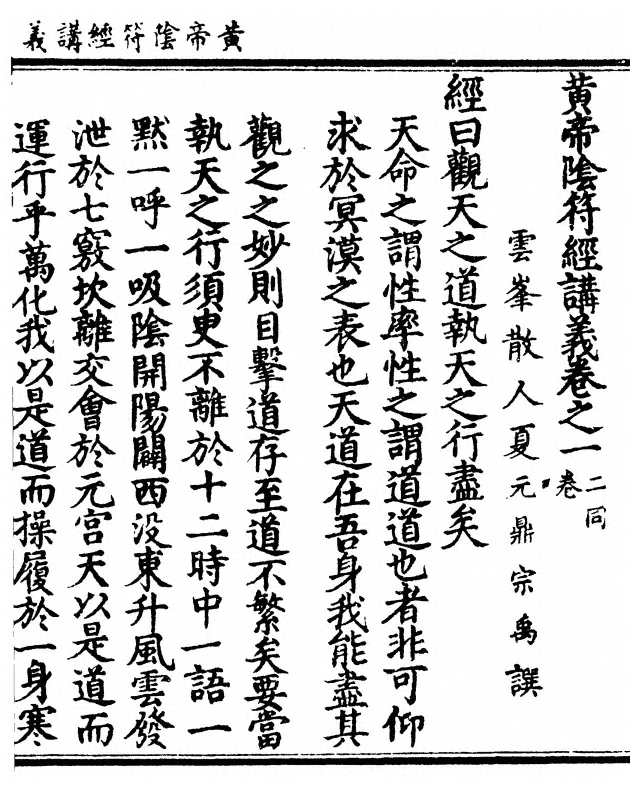 黃帝陰符經講義
黃帝陰符經講義卷之一二同卷
雲峯散人夏元鼎宗禹譔
經曰觀天之道執天之行盡矣
天命之謂性率性之謂道道也者非可仰
求於冥漠之表也天道在吾身我能盡其
觀之之妙則目擊道存至道不繁矣要當
執天之行須臾不離於十二時中一語一
默一呼一吸陰開陽闢西没東升風雲發
泄於七竅坎離交會於元宮天以是道而
運行乎萬化我以是道而操履於一身寒